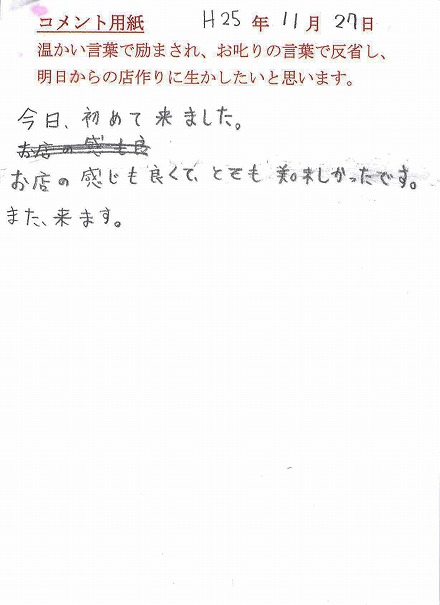 コメント用紙 H25年11月27日
温かい言葉で励まされ、お叱りの言葉で反省し、
明日からの店作りに生かしたいと思います。
今日、初めて来ました。
お店の感も良
お店の感じも良くて、とても美味しかったです。
また、来ます。